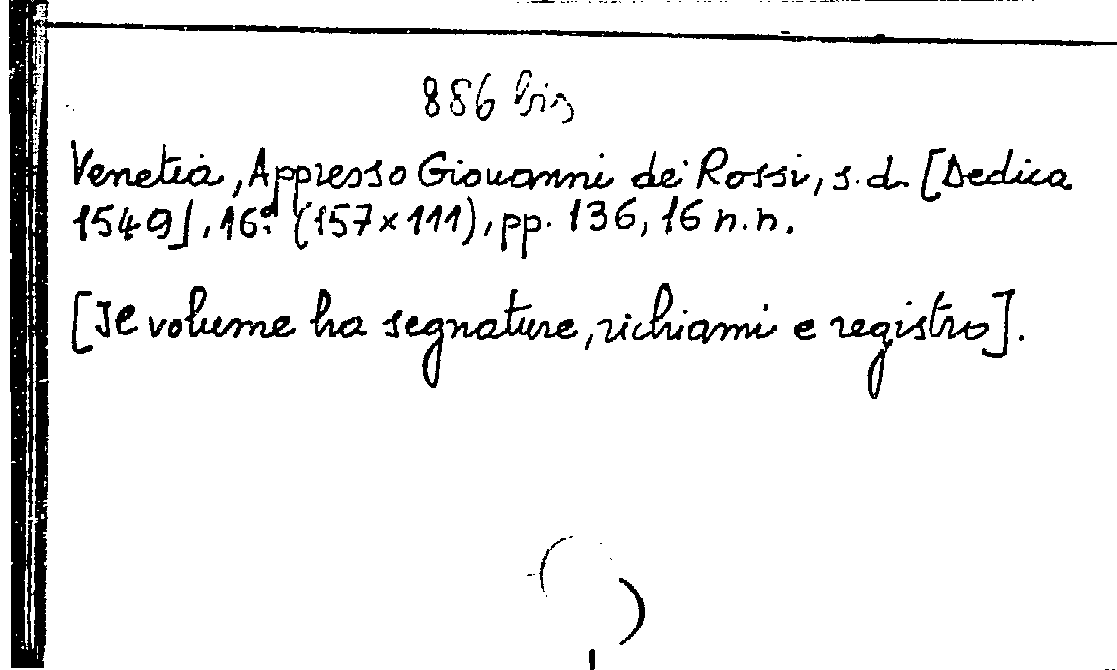 886 bis
Venetia, Appresso Giovanni dei Rossi, s.d. [Dedica
1549], 16º. (157×111), pp. 136, 16 n.n.
[Il volume ha segnature, richiami e registro].